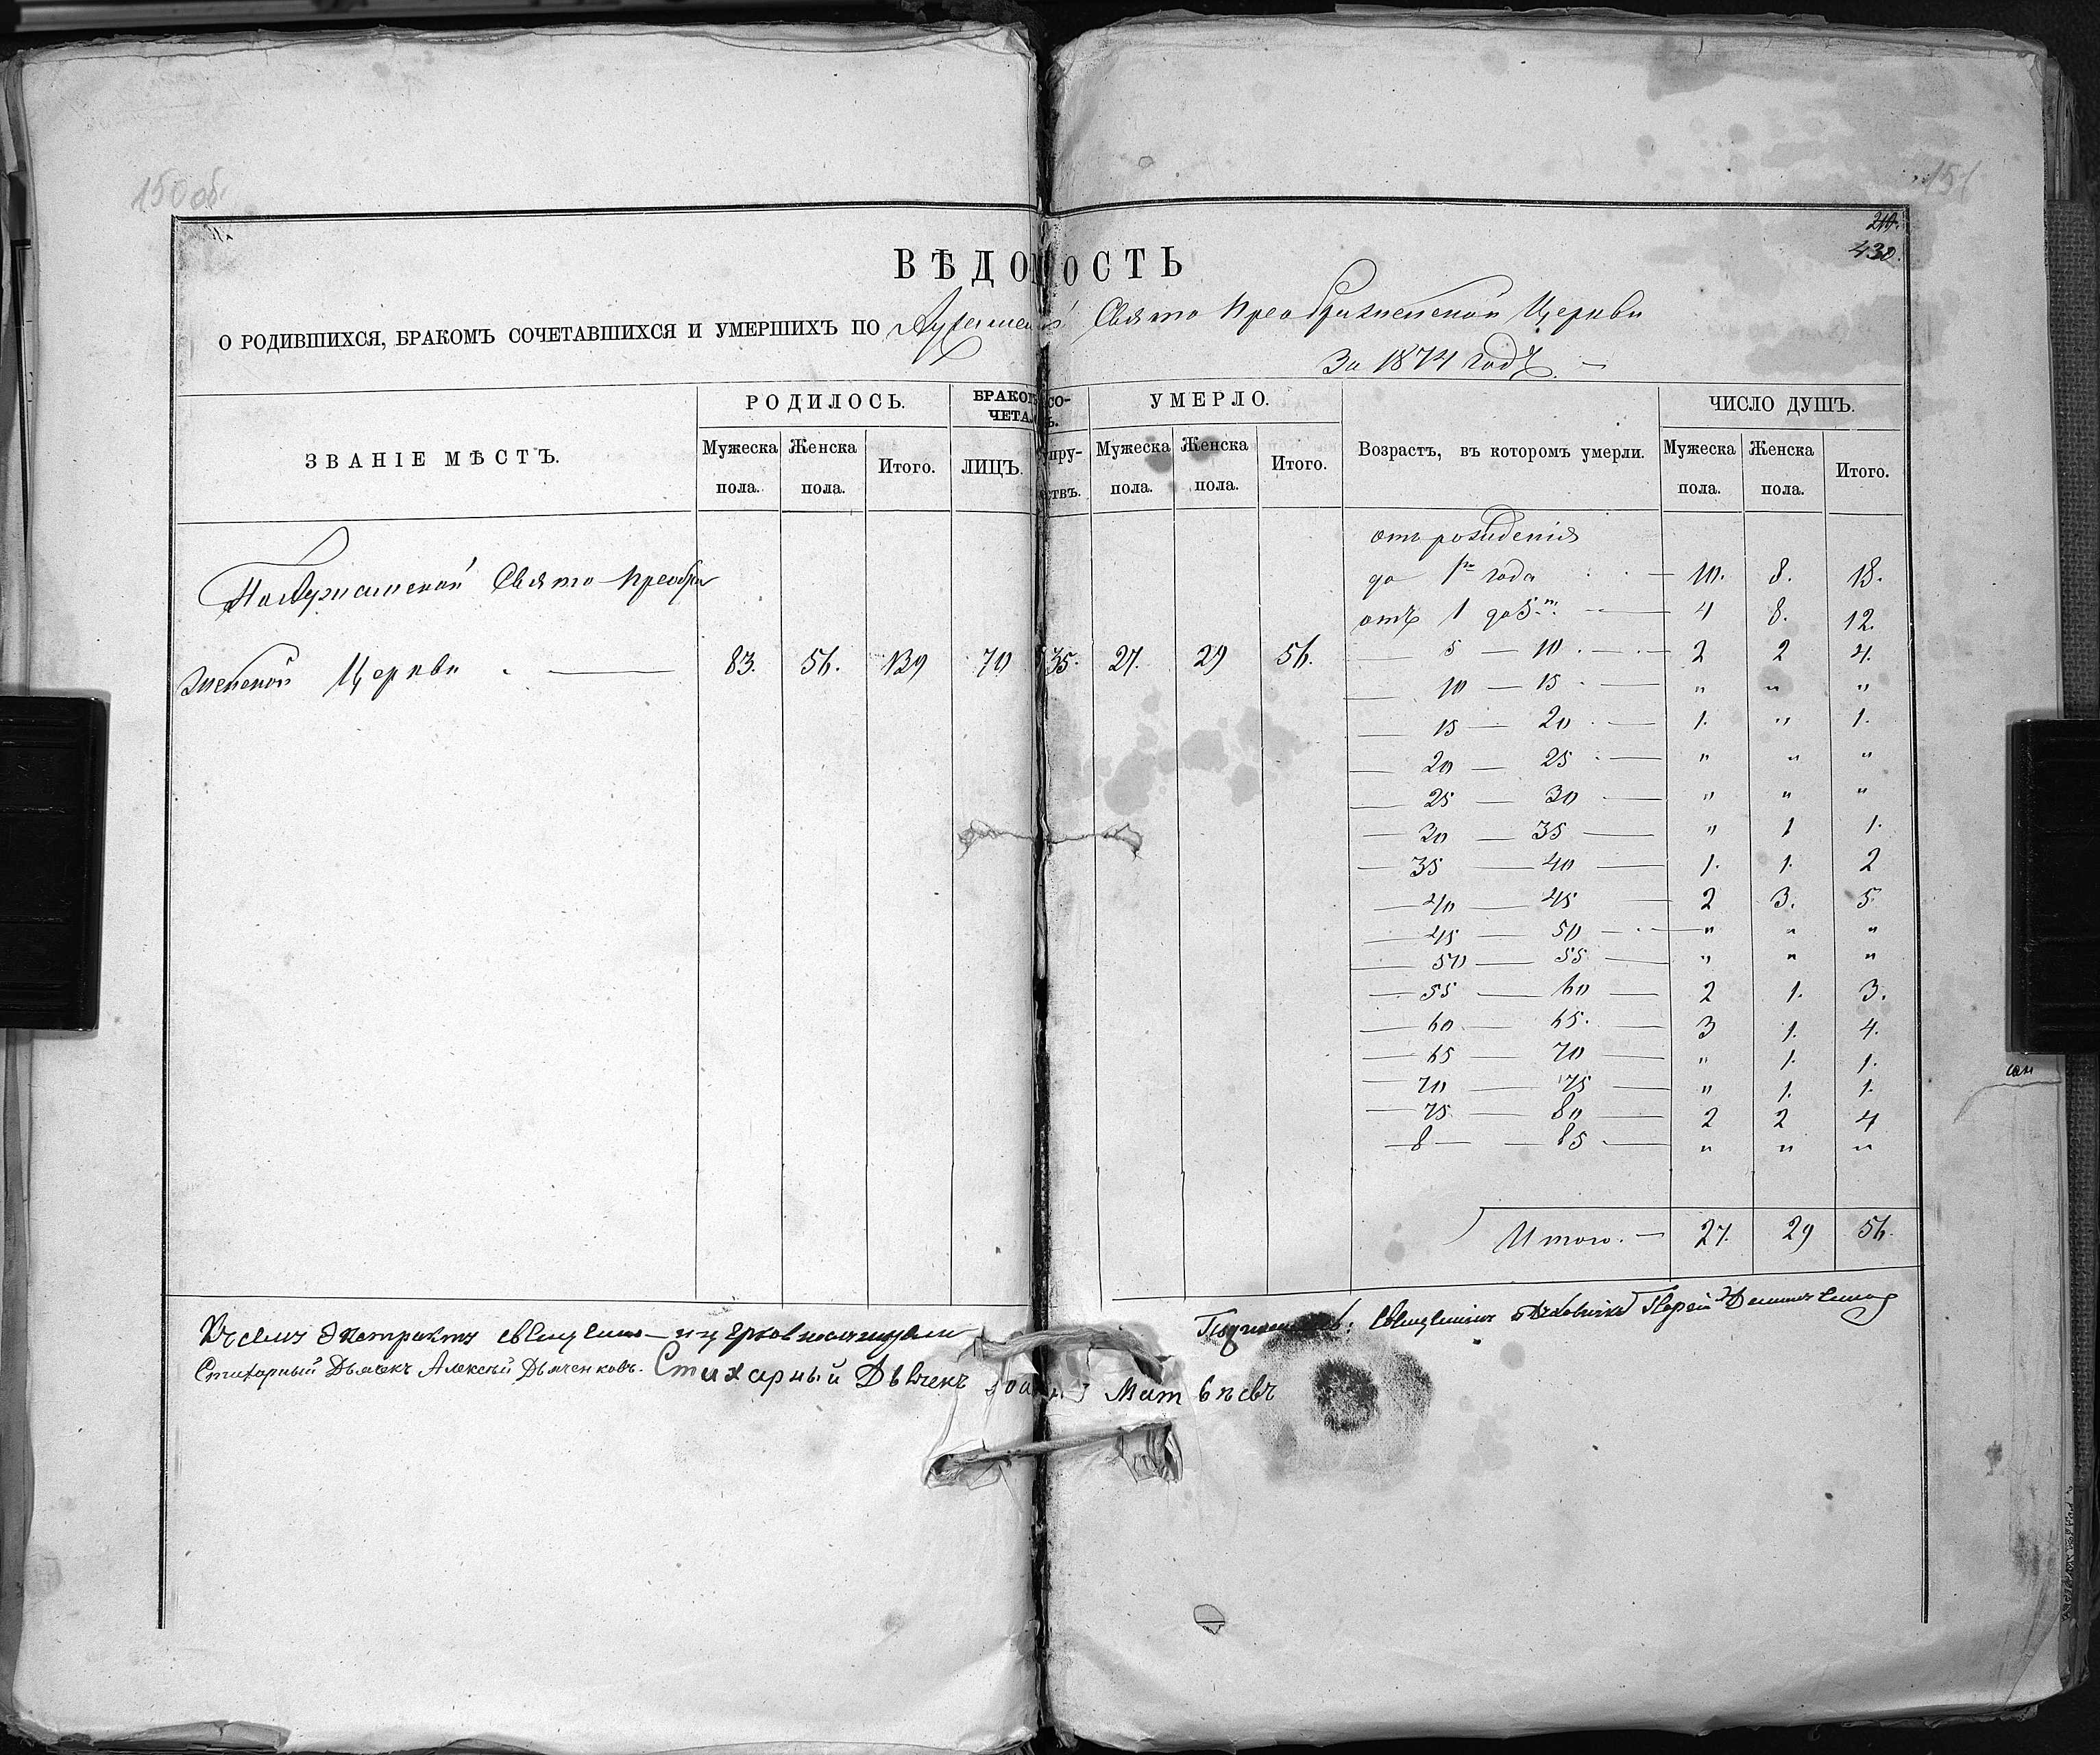 150 об.
151
210.
430.
ВѢДОМОСТЬ
О РОДИВШИХСЯ, БРАКОМЪ СОЧЕТАВШИХСЯ И УМЕРШИХЪ ПО Свято Преображенской Церкви
За 1874 годъ. —
ЗВАНІЕ МѢСТЪ. РОДИЛОСЬ. БРАКОМЪ СО- УМЕРЛО. Возрастъ, въ которомъ умерли. ЧИСЛО ДУШЪ.
ЧЕТАЛ Ь.
Мужеска Женска Итого. ЛИЦЪ. пру- Мужеска Женска Итого. Мужеска Женска Итого.
пола. пола. ствъ. пола. пола. пола. пола.
отъ рожденія
до 1го года — 10. 8. 18.
отъ 1 до 5.ти — 4 8. 12.
Свято Преобра
женской Церкви . — 83. 56. 139 70 35. 27. 29 56.
— 5 — 10 . — 2 2 4.
— 10 — 15 . — " " "
— 15 — 20 . — 1. " 1.
— 20 — 25 . — " " "
— 25 — 30 — " " "
— 30 — 35 — " 1 1.
— 35 — 40 — 1. 1. 2
— 40 — 45 — 2 3. 5
— 45 — 50 — " " "
— 50 — 55 — " " "
— 55 — 60 — 2 1. 3.
— 60 — 65. — 3 1. 4.
— 65 — 70 — " 1. 1.
— 70 — 75 — " 1. 1.
— 75 — 80 — 2 2 4
— 8 — 85 — " " "
Итого. — 27. 29 56.
Къ сему экстракту священно-и церковнослужители
Священникъ
Стихарный Дьячекъ Алексѣй Дьяченковъ. Стихарный Дьячекъ Матвѣевъ